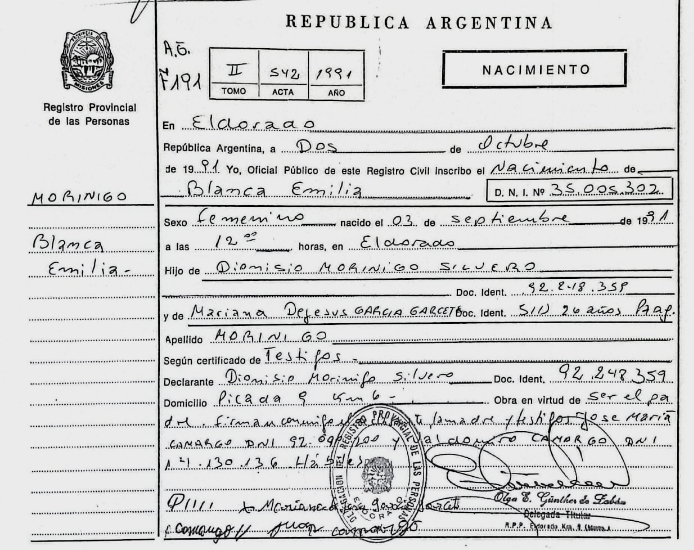 REPUBLICA ARGENTINA
PROVINCIA DE MISIONES
Registro Provincial
de las Personas
F191
II S42 1991
TOMO ACTA AÑO
NACIMIENTO
En Eldorado
República Argentina, a Dos de Octubre
de 1991 Yo, Oficial Público de este Registro Civil inscribo el Nacimiento de
Blanca Emilia D. N. I. Nº 35.005.302
MORINIGO
Blanca
Emilia -
Sexo femenino nacido el 03 de septiembre de 1991
a las 12 00 horas, en Eldorado
Hijo de Dionisio MORINIGO SILVERO
Doc. Ident. 92.248.359
y de Mariana Dejesus GARCIA GARCETE Doc. Ident. S/D 26 años Parag.
Apellido MORINIGO
Según certificado de Testigos -
Declarante Dionisio Morinigo Silvero Doc. Ident. 92.248.359
Domicilio Picada 9 Km 6 - Obra en virtud de ser el pa
dre. Firman conmigo el la madre y testigos Jose Maria
CAMARGO DNI 92. 200 y CAMARGO DNI
130.136 Hábiles
DELEGACION DEL REGISTRO PROVINCIAL DE LAS PERSONAS
ELDORADO
Olga E. Günther de
Delegada Titular
R.P.P. Eldorado Km. 9 (Mnes.)